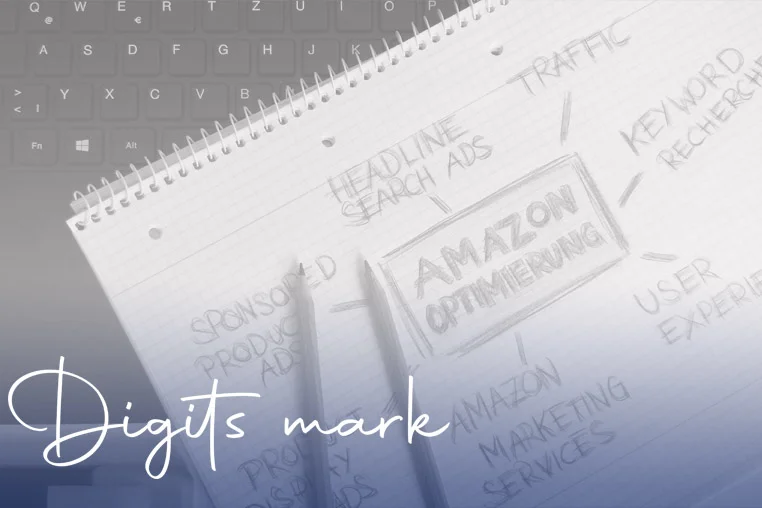 Q W E R T Z U I O P
@ €
A S D F G H J K
> Y X C V B
< |
Fn Alt
TRAFFIC
KEYWORD
RECHERCHE
HEADLINE
SEARCH ADS
AMAZON
OPTIMIERUNG
SPONSORED
PRODUCT
ADS
USER
EXPERIE
AMAZON
MARKETING
SERVICES
PRODUCT
DISPLAY
ADS
Digits mark